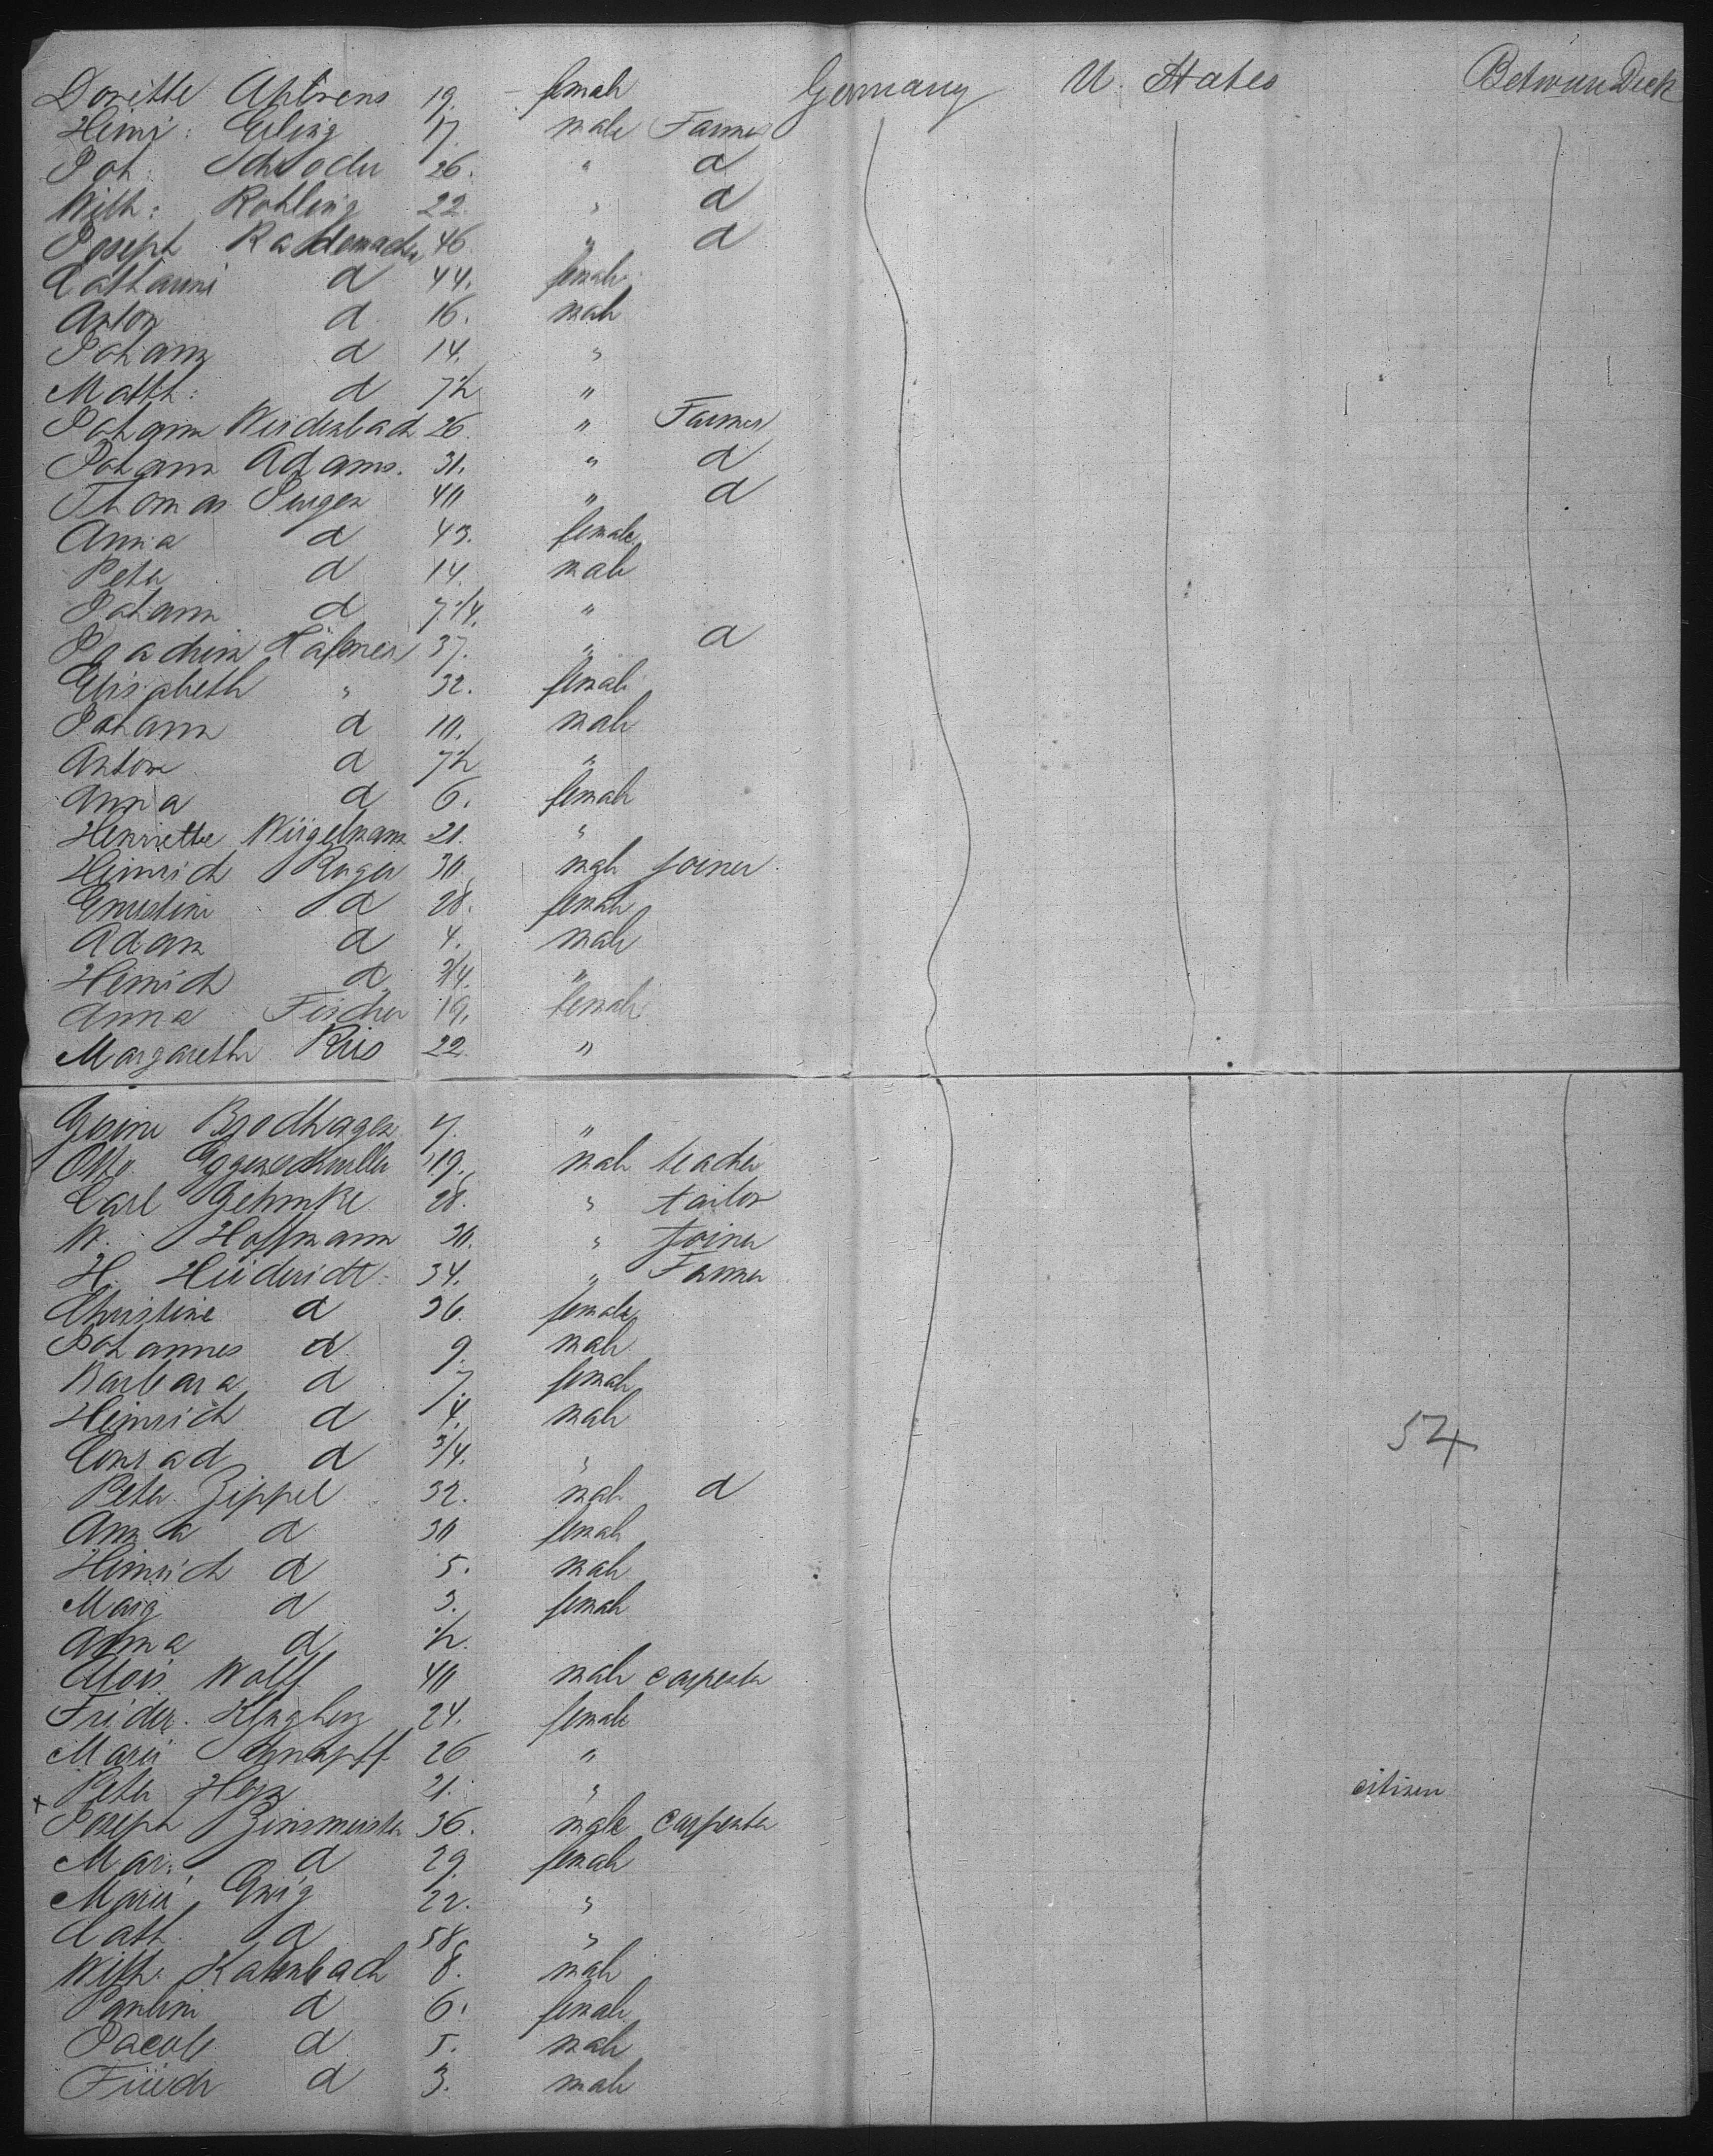 Dorette Ahlrens 19. – female Germany U. States Between Deck
Heinr: Erling 17. male Farmer
Joh: Schroder 26. " d
Wilh: Rohling 22. " d
Joseph Rademacher 46. " d
Catharine d 44. female
Anton d 16. male
Johann d 14. "
Matth: d 7½ "
Johann Weidenbach 26. " Farmer
Johann Adams. 31. " d
Thomas Jurgen 40 " d
Anna d 43. female
Peter d 14. male
Johann d 7¼. "
Joachim Häfner 37. " d
Elisabeth " 32. female
Johann d 10. male
Anton d 7½ "
Anna d 6. female
Henriette Wiigelmann 21. "
Heinrich Ruger 30. male joiner
Ernestine d 28. female
Adam d 4. male
Heinrich d ¾. "
Anna Fischer 19. female
Margarethe Ries 22. "
Gesine Brodthagen "
Otto 19. male teacher
Carl Gehmke 28. " tailor
W. Hoffmann 30. " joiner
H. 34. " Farmer
Christine d 36. female
Johannes d 9. male
Barbara d 7. female
Heinrich d 4. male
Conrad d ¾. "
54
Peter Zippel 32. male d
Anna d 30 female
Heinrich d 5. male
Marg d 3. female
Anna d ½.
Alois Wolff 40 male carpenter
Frieder. 24. female
Marie 26 "
Peter 21. " citizen
x Joseph Zinsmeister 36. male carpenter
Mar: d 29. female
Marie 22. "
Cath. d 58. "
Wilh: Katenbach 8. male
Pauline d 6. female
Jacob d 5. male
Friedr d 3. male